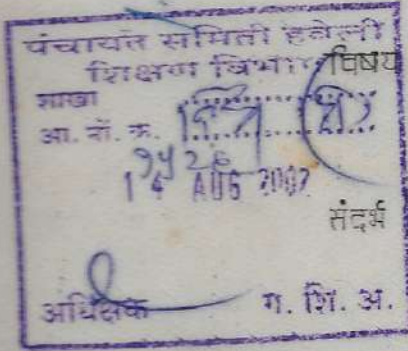 पंचायत समिती हवेली
शिक्षण विभाग विषय
शाखा
आ. नों. क्र.
14 AUG 2007
संदर्भ
अधिक्षक ग. शि. अ.